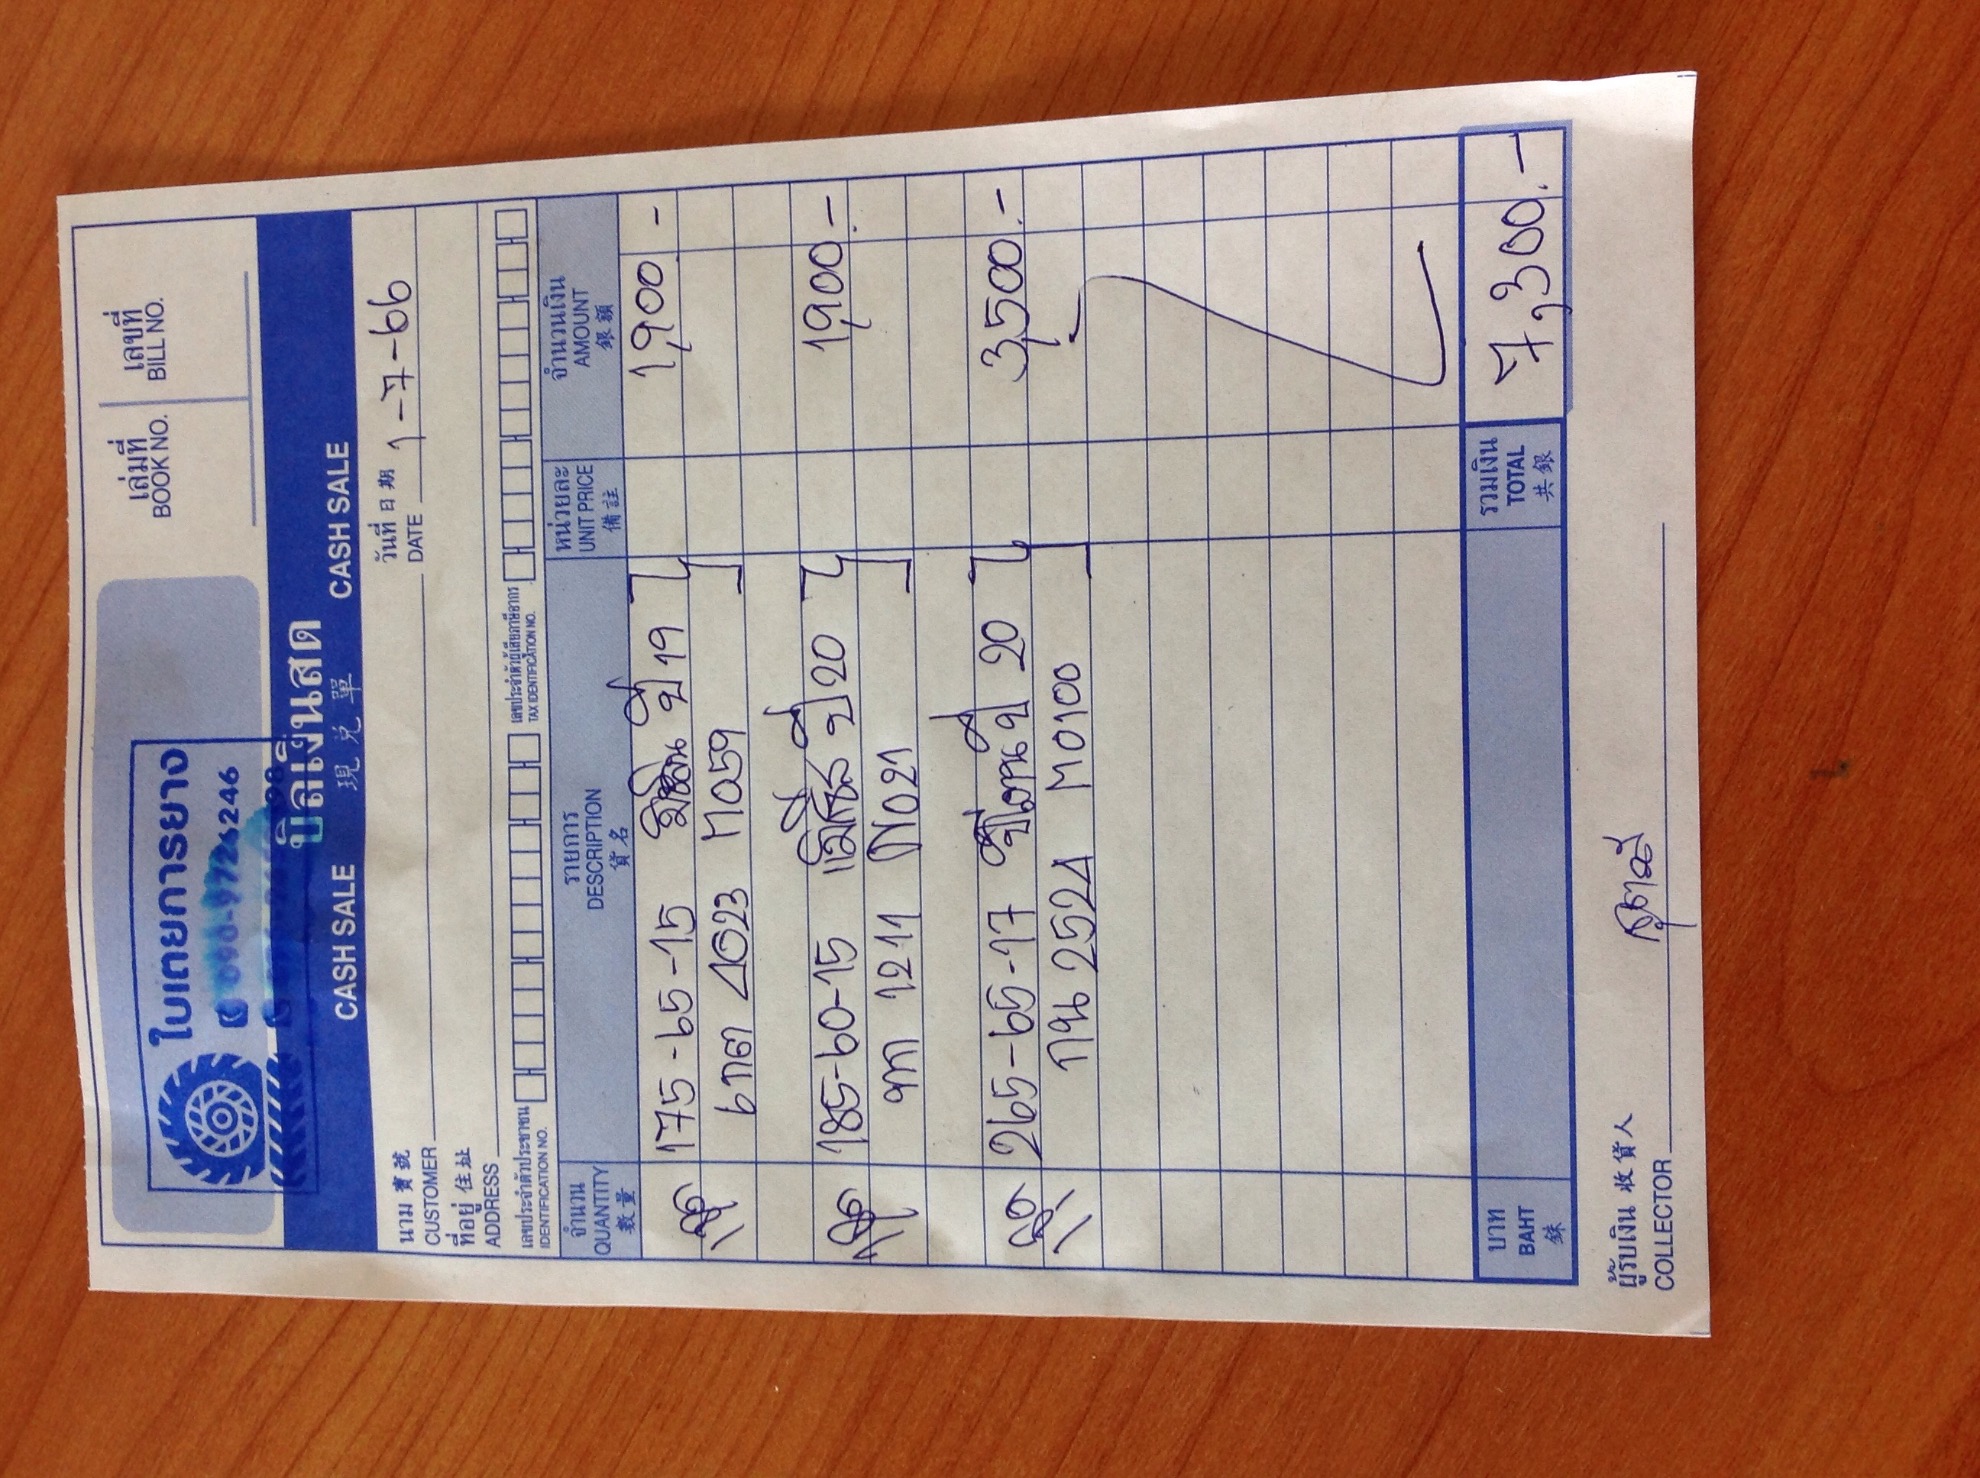 เล่มที่ เลขที่
BOOK NO. BILL NO.
ใบเตยการยาง
090-9726246
บิลเงินสด
CASH SALE 現兌單 CASH SALE
นาม 寶號 วันที่ 日期 1-7-66
CUSTOMER DATE
ที่อยู่ 住址
ADDRESS
เลขประจำตัวประชาชน เลขประจำตัวผู้เสียภาษีอากร
IDENTIFICATION NO. TAX IDENTIFICATION NO.
จำนวน รายการ หน่วยละ จำนวนเงิน
QUANTITY DESCRIPTION UNIT PRICE AMOUNT
數量 貨名 備註 銀額
175-65-15 ปี 19 1,900 -
4023 M059
185-60-15 ปี 20 1,900.-
1211 N021
265-65-17 ปี 20 3,500.-
กน 2524 M0100
บาท รวมเงิน 7,300.-
BAHT TOTAL
銖 共銀
ผู้รับเงิน 收貨人
COLLECTOR